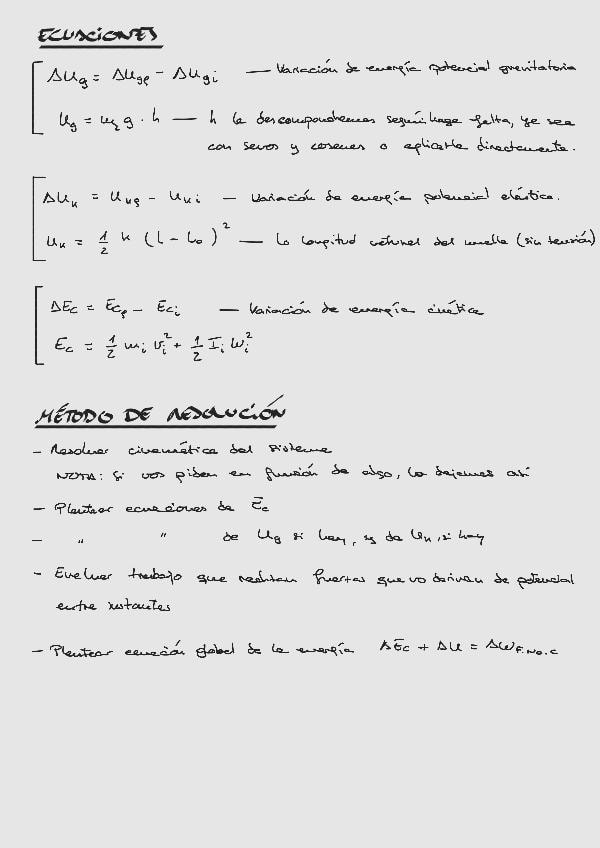 ECUACIONES
ΔUg = ΔUgf - ΔUgi — Variación de energía potencial gravitatoria
Ug = m g · h — h la descompondremos según haga falta, ya sea
con senos y cosenos o aplicarla directamente.
ΔUk = Ukf - Uki — Variación de energía potencial elástica.
Uk = 1/2 k (l - lo)² — lo longitud natural del muelle (sin tensión)
ΔEc = Ecf - Eci — Variación de energía cinética
Ec = 1/2 mi vi² + 1/2 Ii Wi²
MÉTODO DE RESOLUCIÓN
- Resolver cinemática del sistema
NOTA: Si nos piden en función de algo, lo dejamos así
- Plantear ecuaciones de Ec
- " " de Ug si hay, y de Uk, si hay
- Evaluar trabajo que realizan fuerzas que no derivan de potencial
entre instantes
- Plantear ecuación global de la energía ΔEc + ΔU = ΔWF.No.C